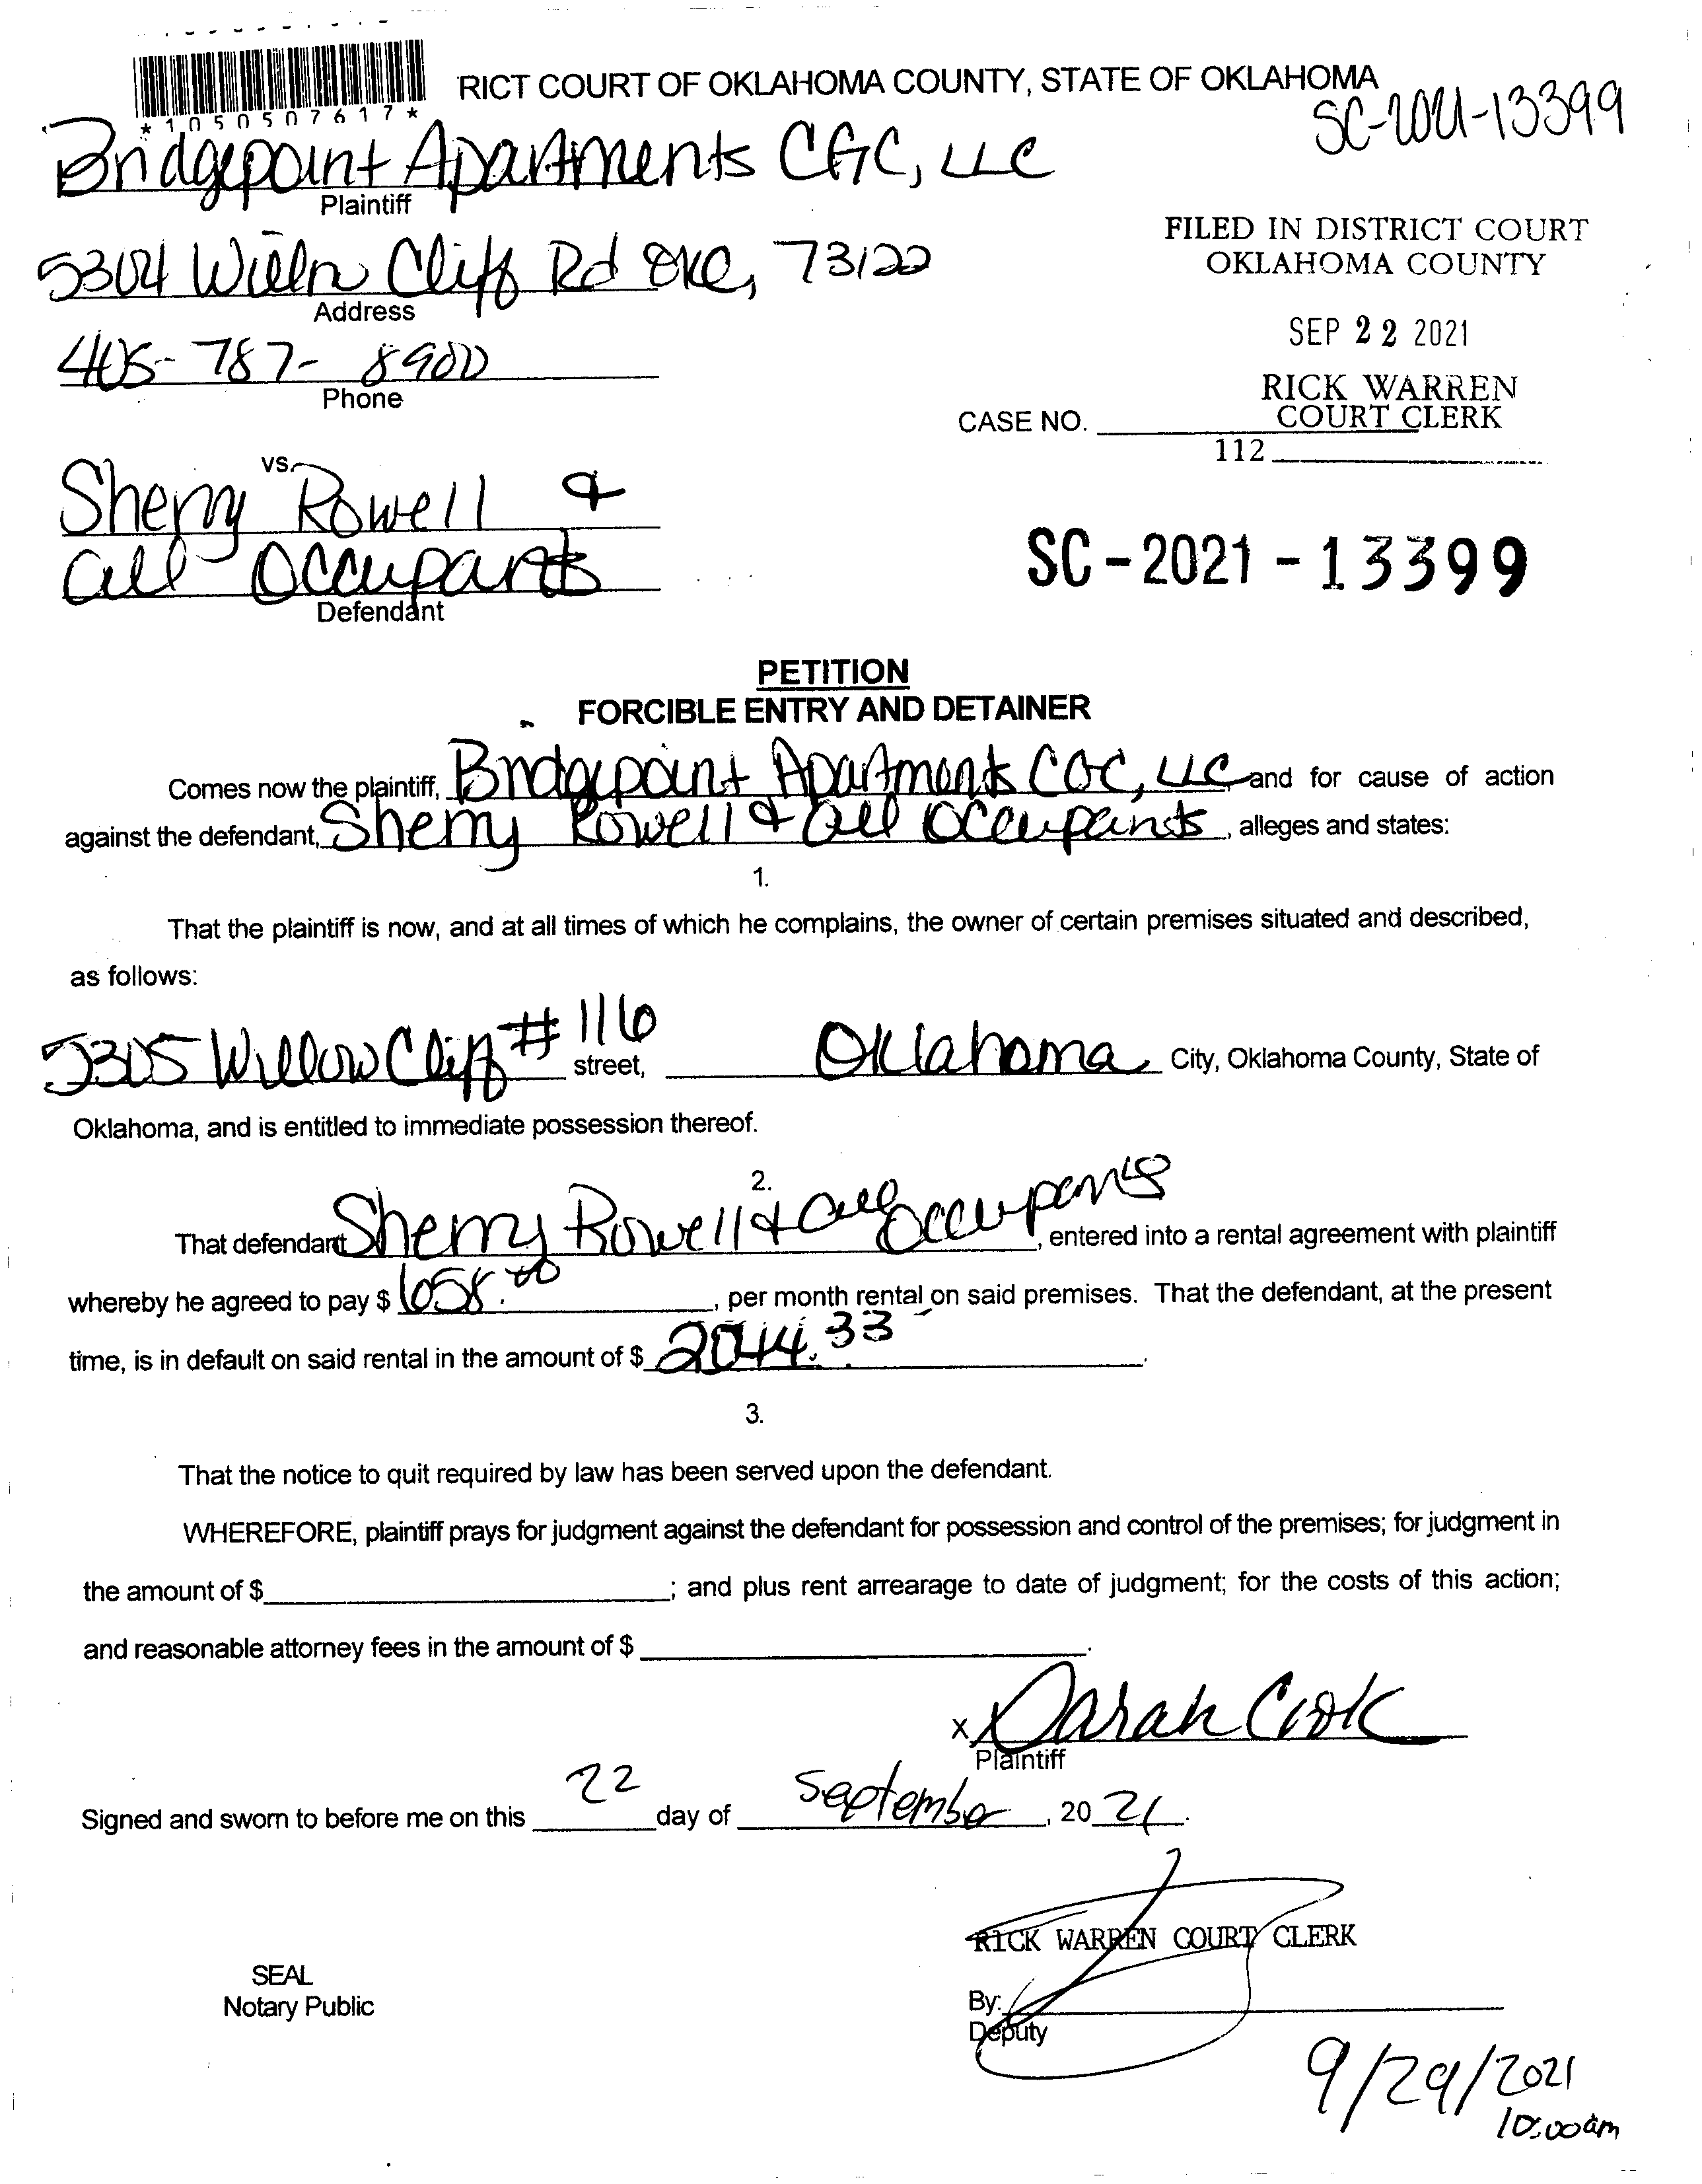 RICT COURT OF OKLAHOMA COUNTY, STATE OF OKLAHOMA
*1050507617*
SC-2021-13399
Bridgepoint Apartments CGC, LLC
Plaintiff
FILED IN DISTRICT COURT
OKLAHOMA COUNTY
5304 Willow Cliff Rd OKC, 73122
Address
SEP 22 2021
405-787-8900
Phone
RICK WARREN
COURT CLERK
CASE NO.
112
vs.
Sherry Rowell &
all Occupants
Defendant
SC-2021-13399
PETITION
FORCIBLE ENTRY AND DETAINER
Comes now the plaintiff, Bridgepoint Apartments CGC, LLC and for cause of action
against the defendant, Sherry Rowell & all Occupants, alleges and states:
1.
That the plaintiff is now, and at all times of which he complains, the owner of certain premises situated and described,
as follows:
5305 Willow Cliff #116 street, Oklahoma City, Oklahoma County, State of
Oklahoma, and is entitled to immediate possession thereof.
2.
That defendant Sherry Rowell & all Occupants, entered into a rental agreement with plaintiff
whereby he agreed to pay $ 658.00, per month rental on said premises. That the defendant, at the present
time, is in default on said rental in the amount of $ 2044.33.
3.
That the notice to quit required by law has been served upon the defendant.
WHEREFORE, plaintiff prays for judgment against the defendant for possession and control of the premises; for judgment in
the amount of $ ; and plus rent arrearage to date of judgment; for the costs of this action;
and reasonable attorney fees in the amount of $ .
x Sarah Cook
Plaintiff
Signed and sworn to before me on this 22 day of September, 2021.
RICK WARREN COURT CLERK
SEAL
Notary Public
By:
Deputy
9/29/2021
10:00am